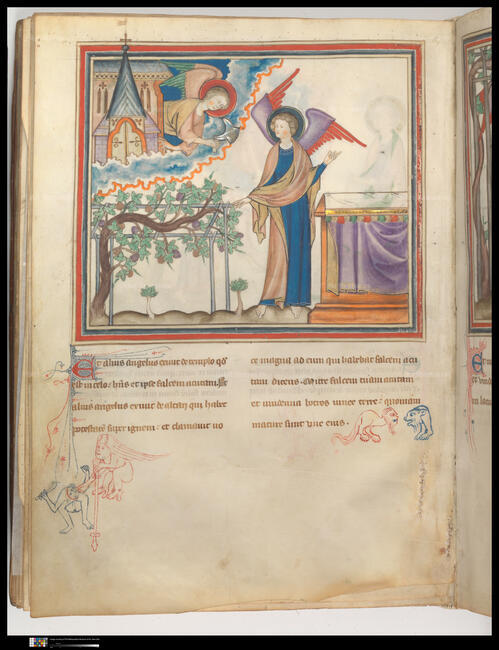 Et alius angelus exiuit de templo qđ
est in celo: hn̄s et ipse falcem acutam. Et
alius angelus exiuit de altari qui habet
potestatē supra ignem: et clamauit uo
ce magna ad eum qui habebat falcem acu
tam dicens. Mitte falcem tuam acutam
et uindemia botros uinee terre: quoniam
mature sunt uue eius.